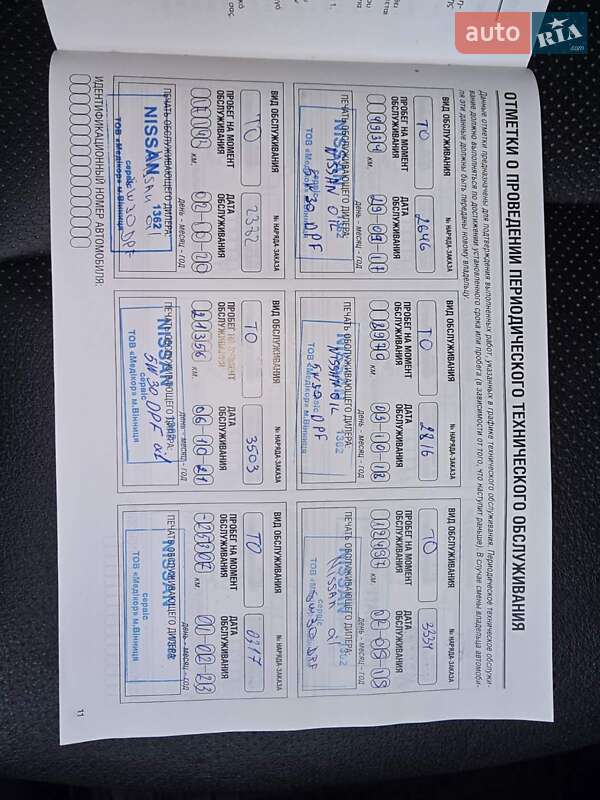 auto RIA.com
ОТМЕТКИ О ПРОВЕДЕНИИ ПЕРИОДИЧЕСКОГО ТЕХНИЧЕСКОГО ОБСЛУЖИВАНИЯ
Данные отметки предназначены для подтверждения выполненных работ, указанных в графике технического обслуживания. Периодическое техническое обслужи-
вание должно выполняться по достижении установленного срока или пробега (в зависимости от того, что наступит раньше). В случае смены владельца автомоби-
ля эти данные должны быть переданы новому владельцу.
ВИД ОБСЛУЖИВАНИЯ
№ НАРЯДА-ЗАКАЗА
ТО
2646
ПРОБЕГ НА МОМЕНТ ОБСЛУЖИВАНИЯ
ДАТА ОБСЛУЖИВАНИЯ
км.
29 09 17
день – месяц – год
ПЕЧАТЬ ОБСЛУЖИВАЮЩЕГО ДИЛЕРА:
NISSAN
NISSAN OIL
сервіс
5W30 DPF
ТОВ «Медікор» м.Вінниця
ВИД ОБСЛУЖИВАНИЯ
№ НАРЯДА-ЗАКАЗА
ТО
2816
ПРОБЕГ НА МОМЕНТ ОБСЛУЖИВАНИЯ
ДАТА ОБСЛУЖИВАНИЯ
км.
03 10 18
день – месяц – год
ПЕЧАТЬ ОБСЛУЖИВАЮЩЕГО ДИЛЕРА:
NISSAN 1362
NISSAN OIL
сервіс
5W30 DPF
ТОВ «Медікор» м.Вінниця
ВИД ОБСЛУЖИВАНИЯ
№ НАРЯДА-ЗАКАЗА
ТО
3334
ПРОБЕГ НА МОМЕНТ ОБСЛУЖИВАНИЯ
ДАТА ОБСЛУЖИВАНИЯ
км.
день – месяц – год
ПЕЧАТЬ ОБСЛУЖИВАЮЩЕГО ДИЛЕРА:
NISSAN 1362
NISSAN oil
сервіс
5W30 DPF
ТОВ «Медікор» м.Вінниця
ВИД ОБСЛУЖИВАНИЯ
№ НАРЯДА-ЗАКАЗА
ТО
2382
ПРОБЕГ НА МОМЕНТ ОБСЛУЖИВАНИЯ
ДАТА ОБСЛУЖИВАНИЯ
км.
день – месяц – год
ПЕЧАТЬ ОБСЛУЖИВАЮЩЕГО ДИЛЕРА:
NISSAN 1362
сервіс
5W30 DPF
ТОВ «Медікор» м.Вінниця
ВИД ОБСЛУЖИВАНИЯ
№ НАРЯДА-ЗАКАЗА
ТО
3503
ПРОБЕГ НА МОМЕНТ ОБСЛУЖИВАНИЯ
ДАТА ОБСЛУЖИВАНИЯ
21356 км.
06 10 21
день – месяц – год
ПЕЧАТЬ ОБСЛУЖИВАЮЩЕГО ДИЛЕРА:
NISSAN 1362
сервіс
5W30 DPF oil
ТОВ «Медікор» м.Вінниця
ВИД ОБСЛУЖИВАНИЯ
№ НАРЯДА-ЗАКАЗА
ТО
0317
ПРОБЕГ НА МОМЕНТ ОБСЛУЖИВАНИЯ
ДАТА ОБСЛУЖИВАНИЯ
км.
01 02 23
день – месяц – год
ПЕЧАТЬ ОБСЛУЖИВАЮЩЕГО ДИЛЕРА:
NISSAN 1362
сервіс
ТОВ «Медікор» м.Вінниця
ИДЕНТИФИКАЦИОННЫЙ НОМЕР АВТОМОБИЛЯ:
11